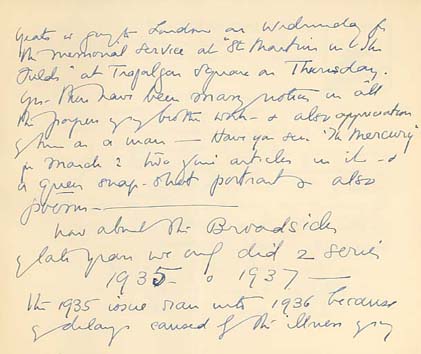 Yeats is going to London on Wednesday for
the memorial service at "St Martins in the
Fields" at Trafalgar Square on Thursday.
Yes there have been many notices in all
the papers of both work - & also appreciation
of him as a man — Have you seen 'The Mercury'
for March 2 two fine articles in it - &
a queer snap-shot portrait & also
poems —
Now about the Broadsides
of late years we only did 2 series
1935 - & 1937 —
The 1935 issue ran into 1936 because
of delays caused by the illness of